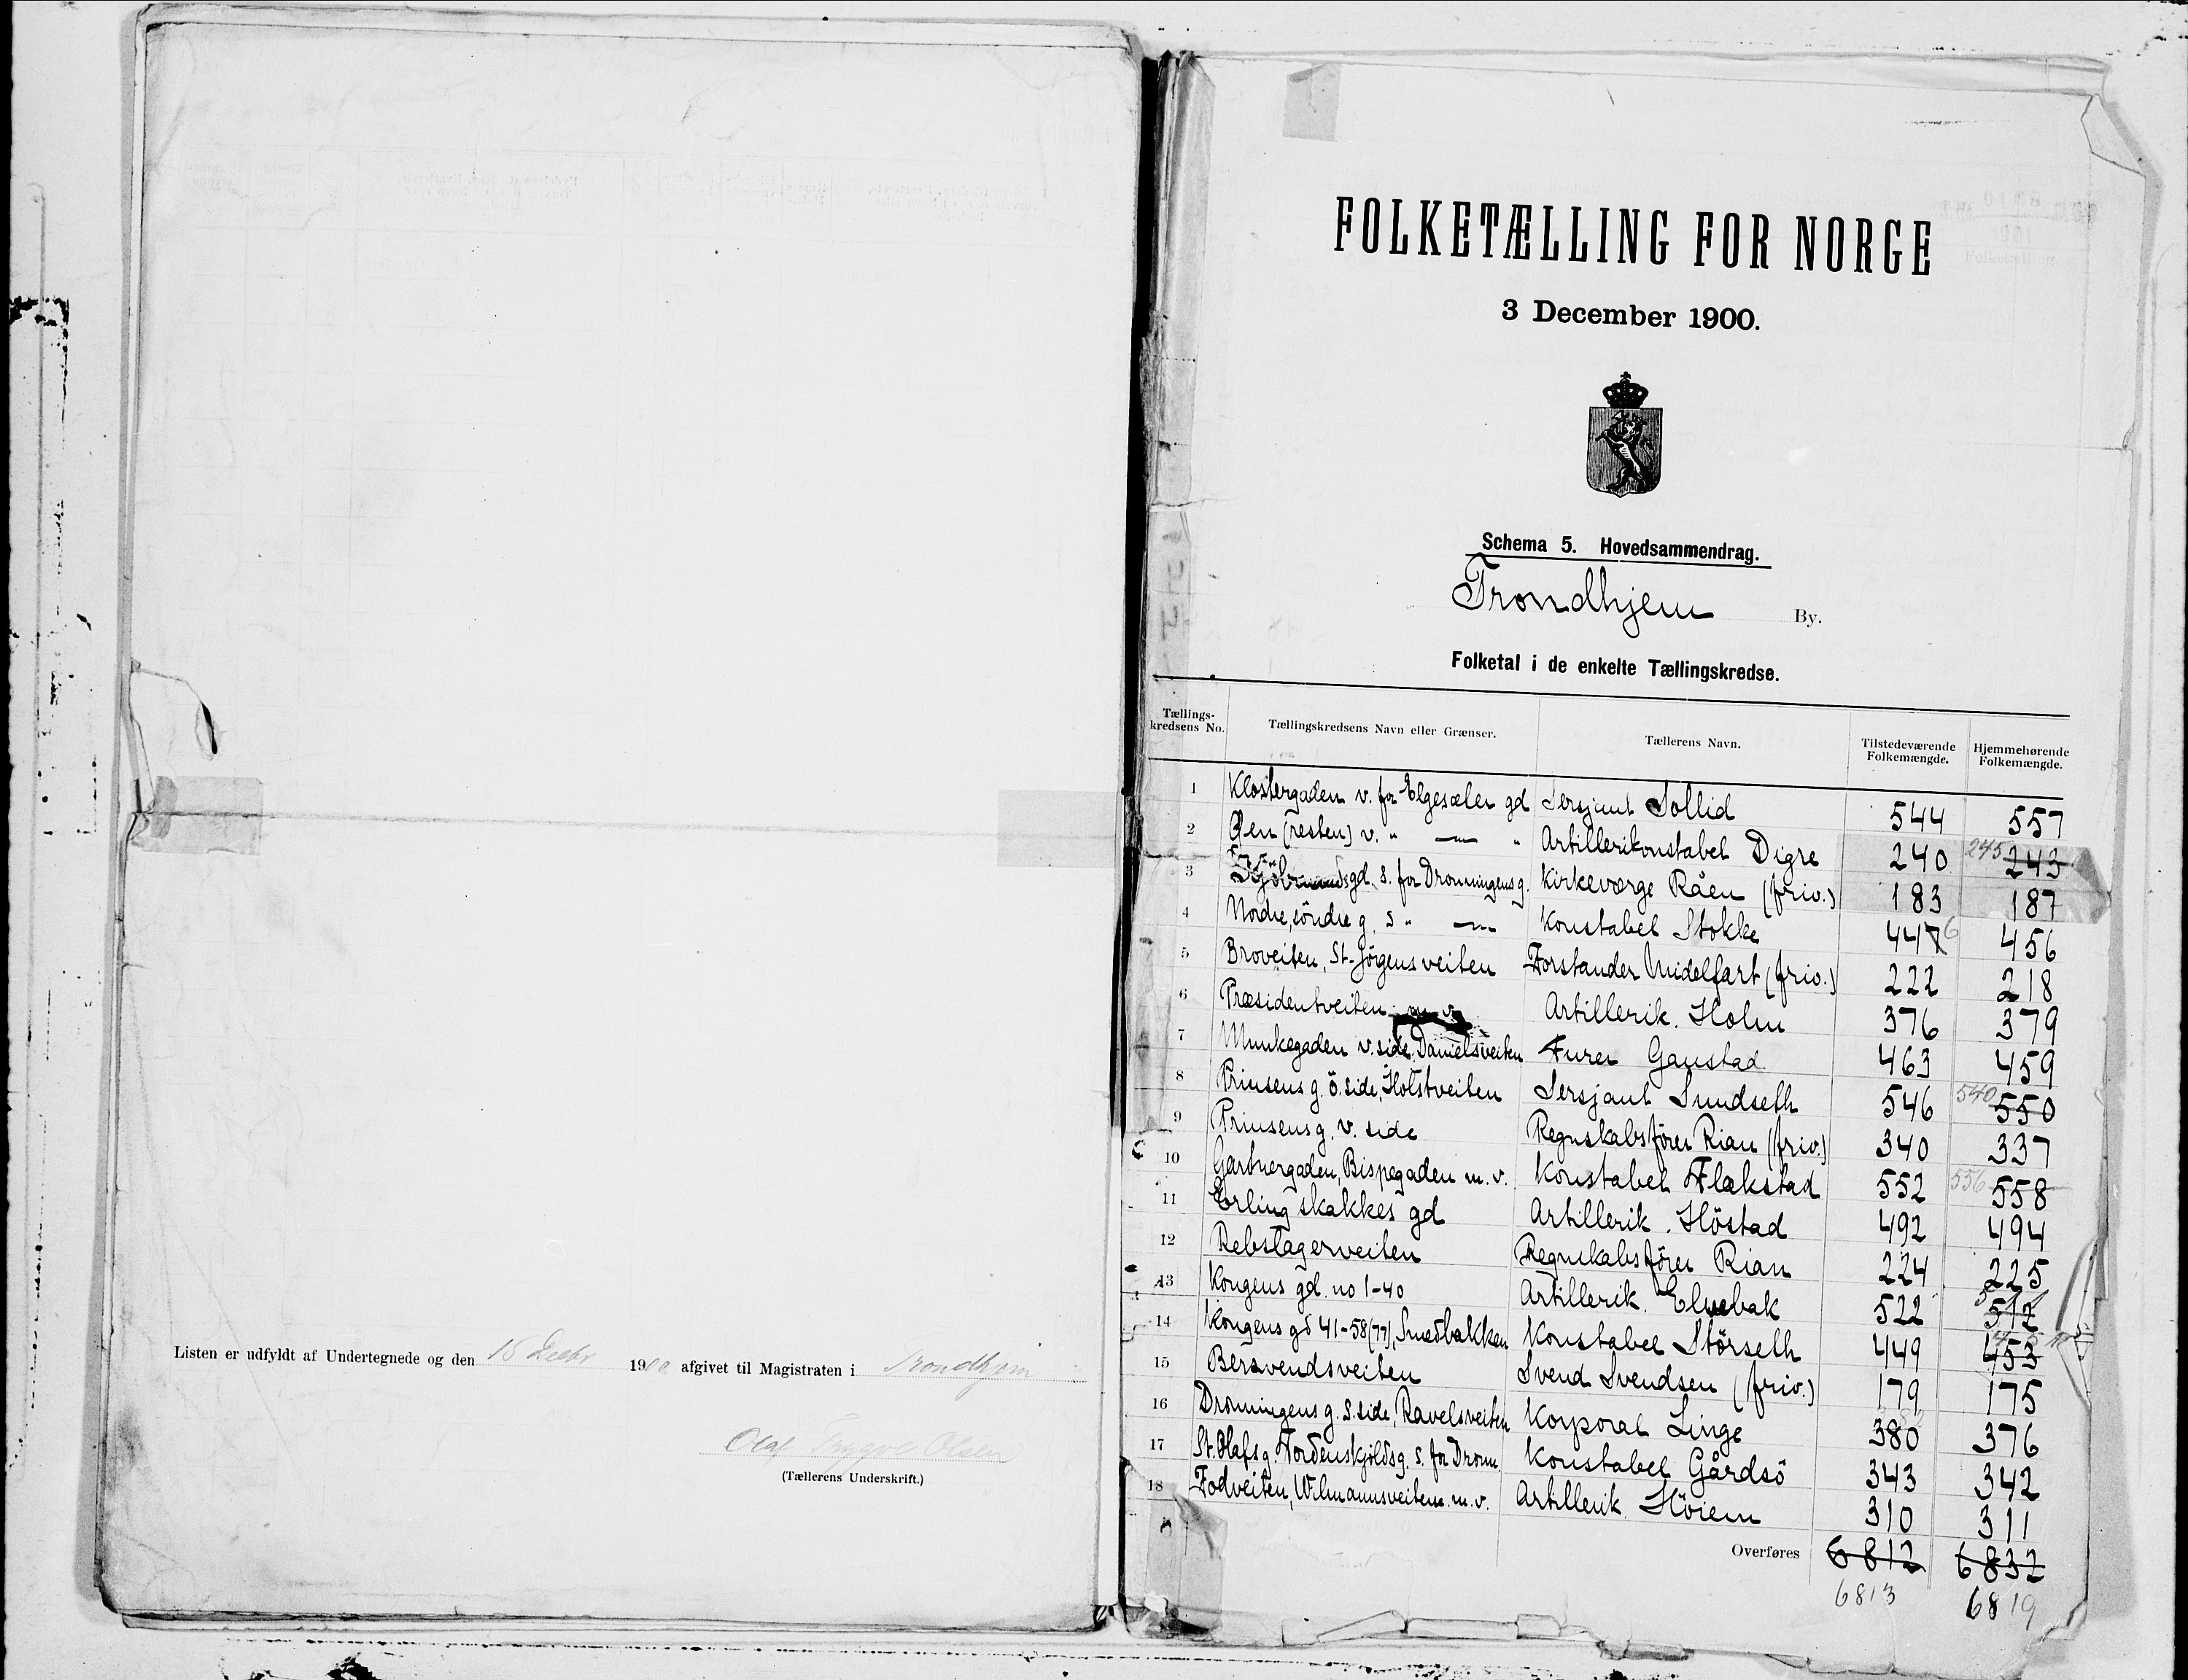 Listen er udfyldt af Undertegnede og den 15 Decbr 1900 afgivet til Magistraten i Trondhjem
Olaf Trygve Olsen
(Tællerens Underskrift.)
FOLKETÆLLING FOR NORGE
3 December 1900.
Schema 5. Hovedsammendrag.
Trondhjem By.
Folketal i de enkelte Tællingskredse.
Tællings-kredsens No. Tællingskredsens Navn eller Grænser. Tællerens Navn. Tilstedeværende Folkemængde. Hjemmehørende Folkemængde.
1 Klostergaden v. for Elgesæter gd Sersjant Sollid 544 557
2 Øen (resten) v. " — " Artillerikonstabel Digre 240 245 243
3 gd. s. for Dronningens g. Kirkeværge Råen (friv.) 183 187
4 Nordre, söndre g. s " — Konstabel Stokke 447 6 456
5 Broveiten, St. Jörgensveiten Forstander Midelfart (friv.) 222 218
6 Præsidentveiten m. v. Artillerik. Holm 376 379
7 Munkegaden v. side, Danielsveiten Furer Gaustad 463 459
8 Prinsens g. ö. side, Holstveiten Sersjant Sundseth 546 540 550
9 Prinsens g. v. side Regnskabsförer Rian (friv.) 340 337
10 Gartnergaden, Bispegaden m. v. Konstabel Flakstad 552 556 558
11 Erling Skakkes gd Artillerik. Höstad 492 494
12 Rebslagerveiten Regnskabsförer Rian 224 225
13 Kongens gd. no 1-40 Artillerik. Elvebak 522 512
14 Kongens gd 41-58 (77), Smedbakken Konstabel Störseth 449 453
15 Bersvendsveiten Svend Svendsen (friv.) 179 175
16 Dronningens g. s. side, Ravelsveiten Korporal Linge 380 376
17 St. Olafs g. Tordenskjolds g. s. for Dronn. Konstabel Gårdsö 343 342
18 Fodveiten, Wilmannsveiten m. v. Artillerik. Höiem 310 311
Overføres 6812 6832
6813 6819